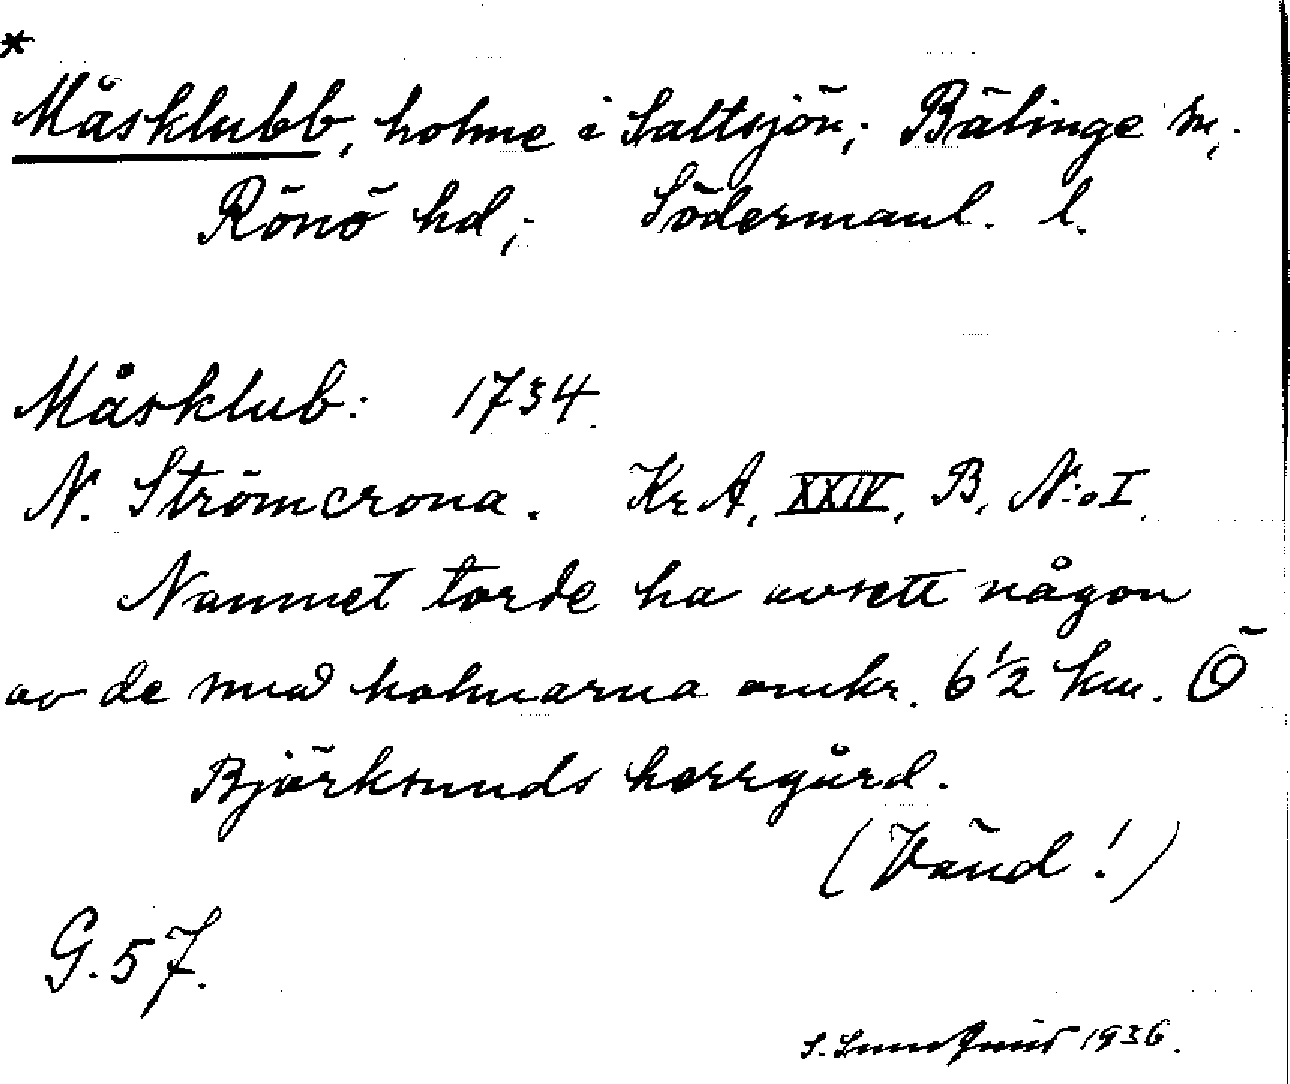 *
Måsklubb, holme i Saltsjön, Bälinge sn,
Rönö hd, Södermanl. l.
Måsklub: 1734.
N. Strömcrona. Kr A, XXIV, B, N:o I.
Namnet torde ha avsett någon
av de små holmarna omkr. 6 1/2 km. Ö
Björksunds herrgård.
(Vänd!)
G. 57.
S. 1936.